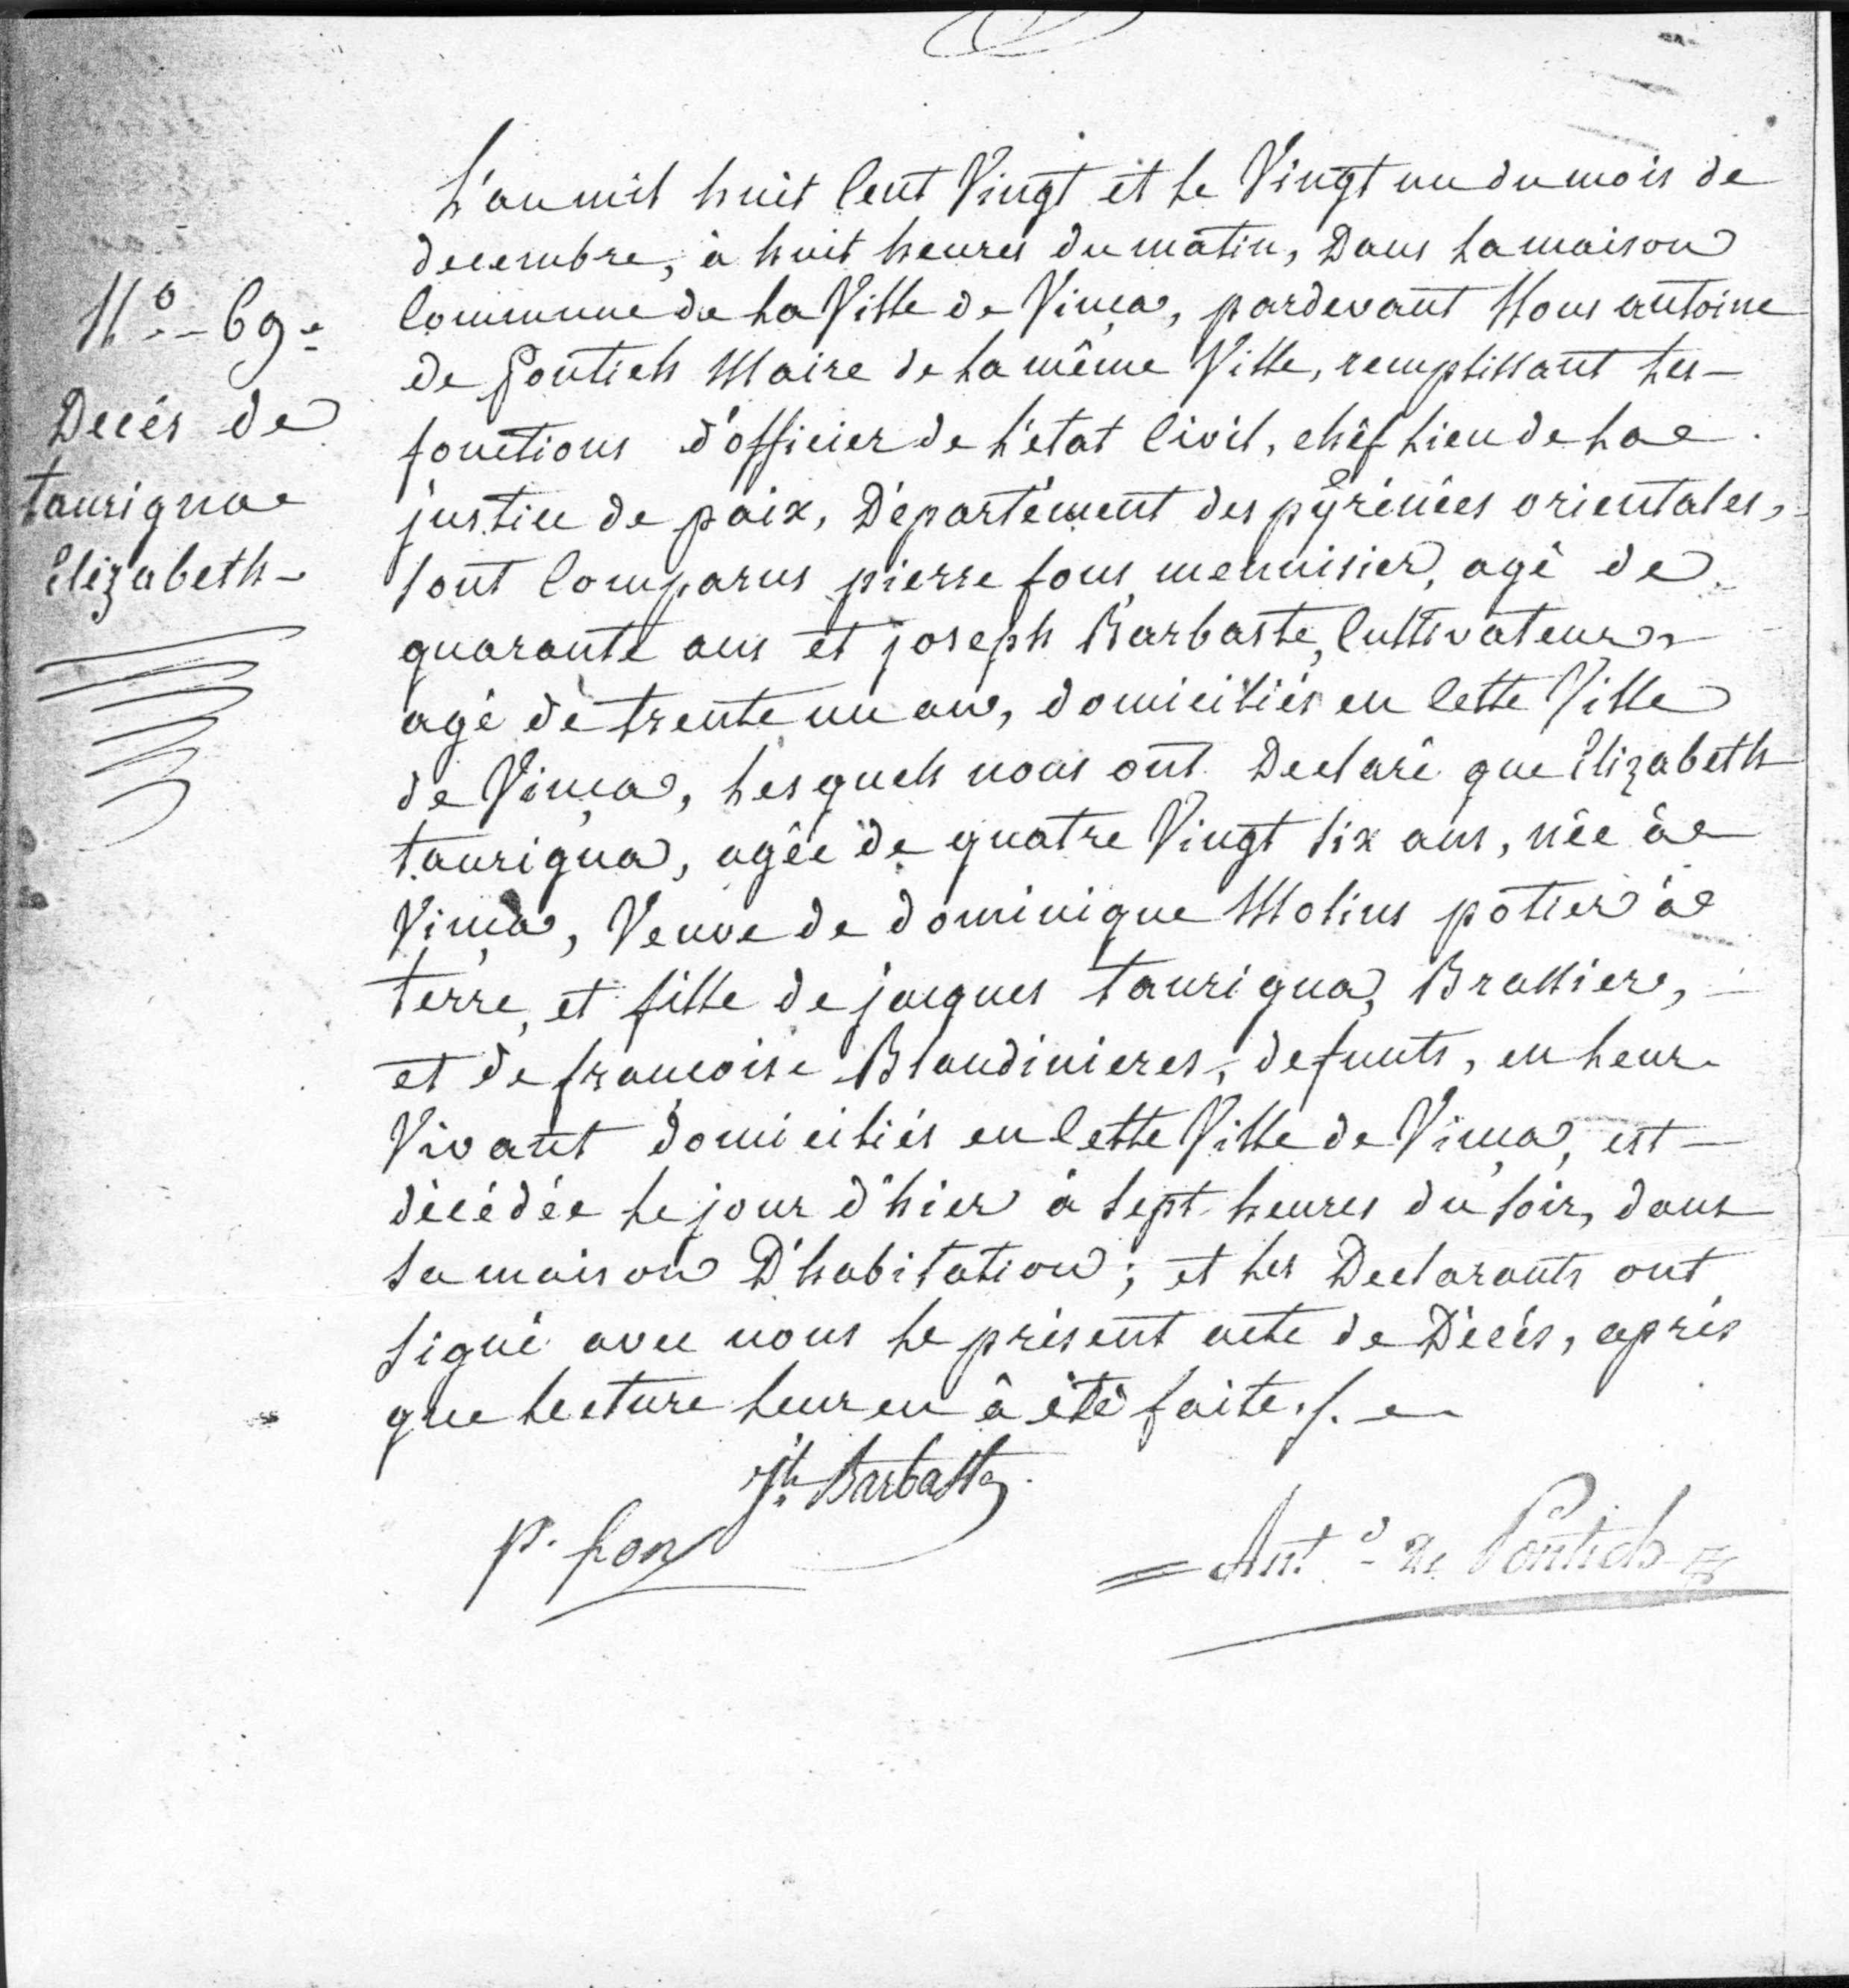 N.° 69.
Decés de
taurigna
Elizabeth
L'an mil huit Cent Vingt et le Vingt un du mois de
decembre, à huit heures du matin, Dans la maison
Commune de la Ville de Vinça, pardevant Nous antoine
de Pontich Maire de la même Ville, remplissant les
fonctions d'officier de l'état Civil, chêf lieu de la
justice de paix, Département des pÿrénées orientales,
sont Comparus pierre fons, menuisier, agé de
quarante ans et joseph Barbaste, Cultivateur,
agé de trente un ans, domiciliés en Cette Ville
de Vinça, lesquels nous ont Declaré que Elizabeth
taurigna, agée de quatre Vingt six ans, née à
Vinça, Veuve de dominique Molins potier à
terre, et fille de jacques taurigna, Brassier,
et de françoise Blandinieres, defunts, en leur
Vivant domiciliés en Cette Ville de Vinça, est
décédée le jour d'hier à sept heures du soir, dans
sa maison D'habitation; et les Declarants ont
signé avec nous le présent acte de Décés, après
que lecture leur en à été faite./.
Jh. Barbaste
P. fons
Ant.e de Pontich